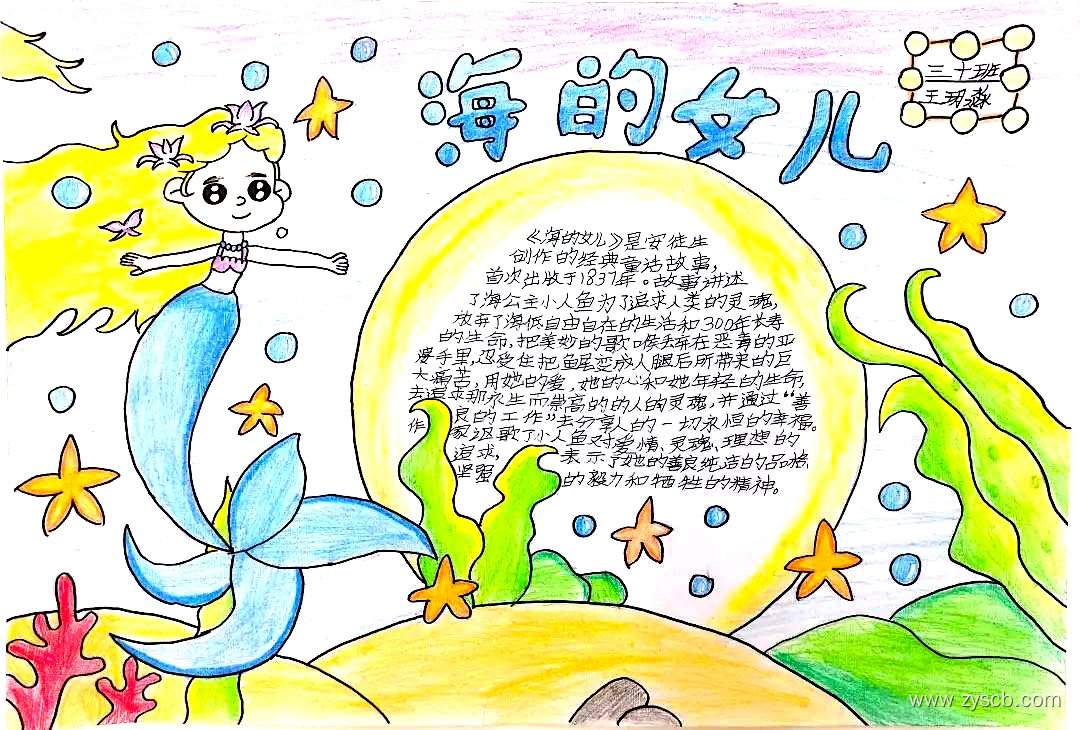 海的女儿
三十班
王玥淼
《海的女儿》是安徒生
创作的经典童话故事,
首次出版于1837年。故事讲述
了海公主小人鱼为了追求人类的灵魂,
放弃了海底自由自在的生活和300年长寿
的生命,把美妙的歌喉丢弃在恶毒的巫
婆手里,忍受住把鱼尾变成人腿后所带来的巨
大痛苦,用她的爱,她的心和她年轻的生命,
去追求那永生而崇高的的人的灵魂,并通过“善
良的工作”去分享人的一切永恒的幸福。
作家讴歌了小人鱼对爱情、灵魂、理想的
追求,表示了她的善良纯洁的品格,
坚强的毅力和牺牲的精神。
www.zyscb.com